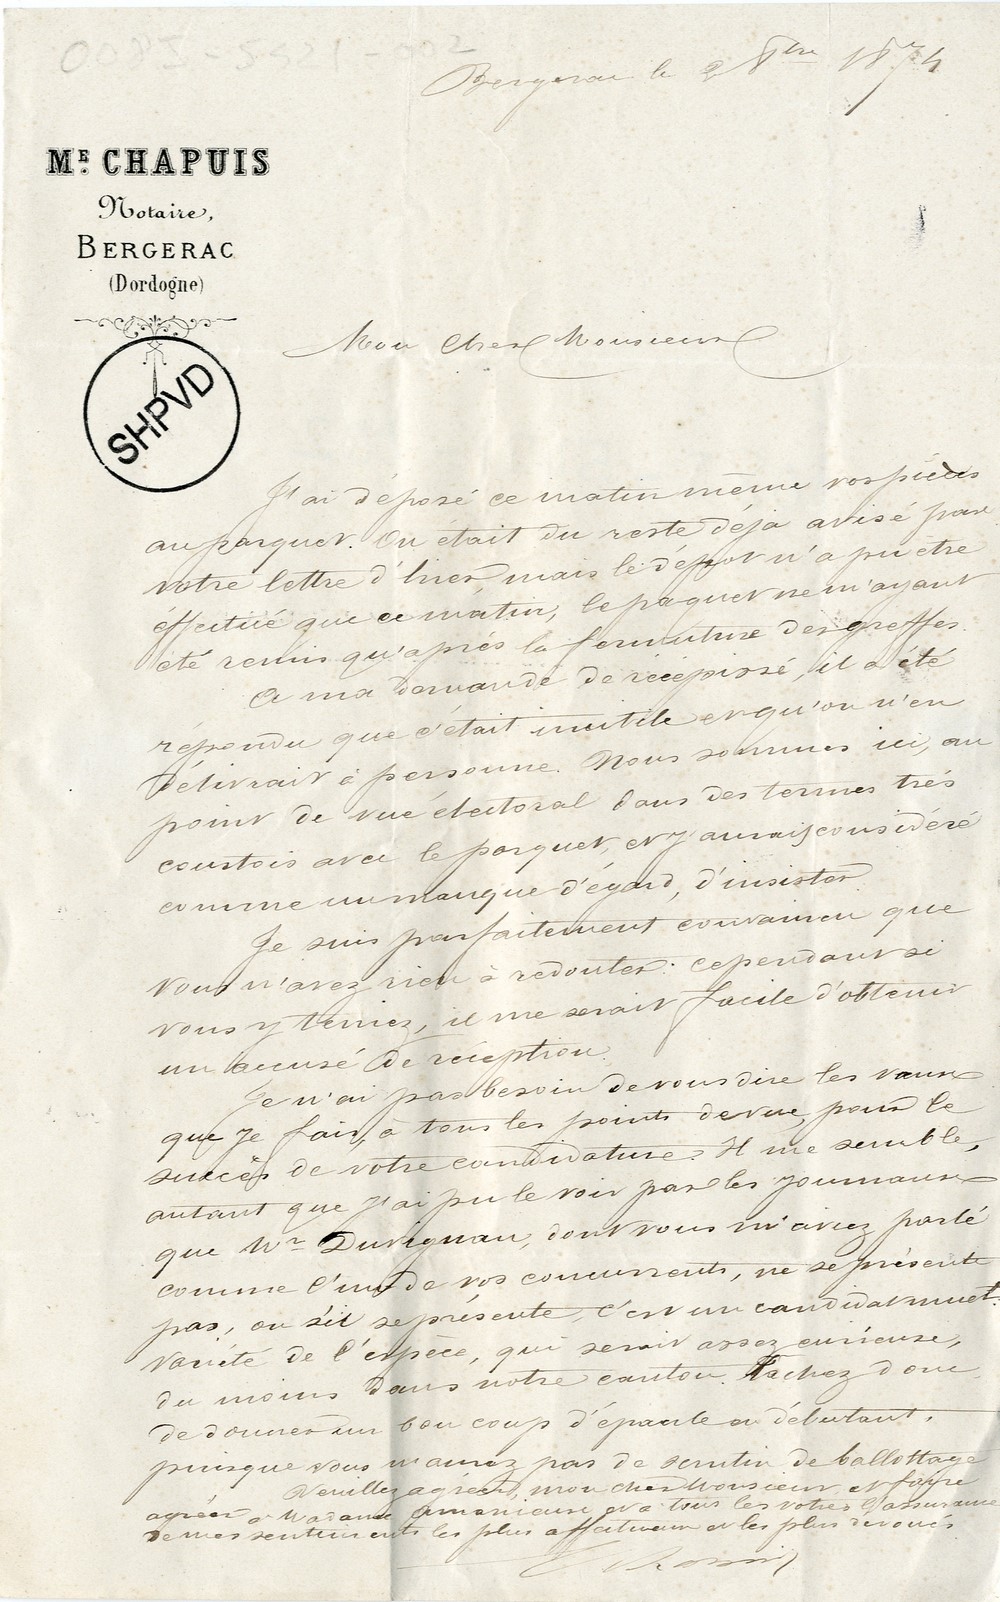 Bergerac le 2 8bre 1874
ME. CHAPUIS
Notaire,
BERGERAC
(Dordogne)
SHPVD
Mon Cher Monsieur
J'ai déposé ce matin même vos pièces
au parquet. On était du reste déjà avisé par
votre lettre d'hier, mais le dépot n'a pu être
éffectué que ce matin, le paquet ne m'ayant
été remis qu'après la fermeture des greffes.
A ma demande de récépissé, il a été
répondu que c'était inutile et qu'on n'en
délivrait à personne. Nous sommes ici, au
point de vue électoral dans des termes très
courtois avec le parquet, et j'aurais considéré
comme un manque d'égard, d'insister.
Je suis parfaitement convaincu que
vous n'avez rien à redouter: cependant si
vous y teniez, il me serait facile d'obtenir
un accusé de réception.
Je n'ai pas besoin de vous dire les vœux
que je fais, à tous les points de vue, pour le
succès de votre candidature. Il me semble,
autant que j'ai pu le voir par les journaux
que Mr Duvignau, dont vous m'aviez parlé
comme l'un de vos concurrents, ne se présente
pas, ou s'il se présente, c'est un candidat muet.
Variété de l'espèce, qui serait assez curieuse,
du moins dans notre canton. Tachez donc
de donner un bon coup d'épaule en débutant,
puisque vous n'aurez pas de scrutin de ballottage
Veuillez agréer, mon cher Monsieur et faire
agréer à Madame et à tous les votres l'assurance
de mes sentiments les plus affectueux et les plus dévoués